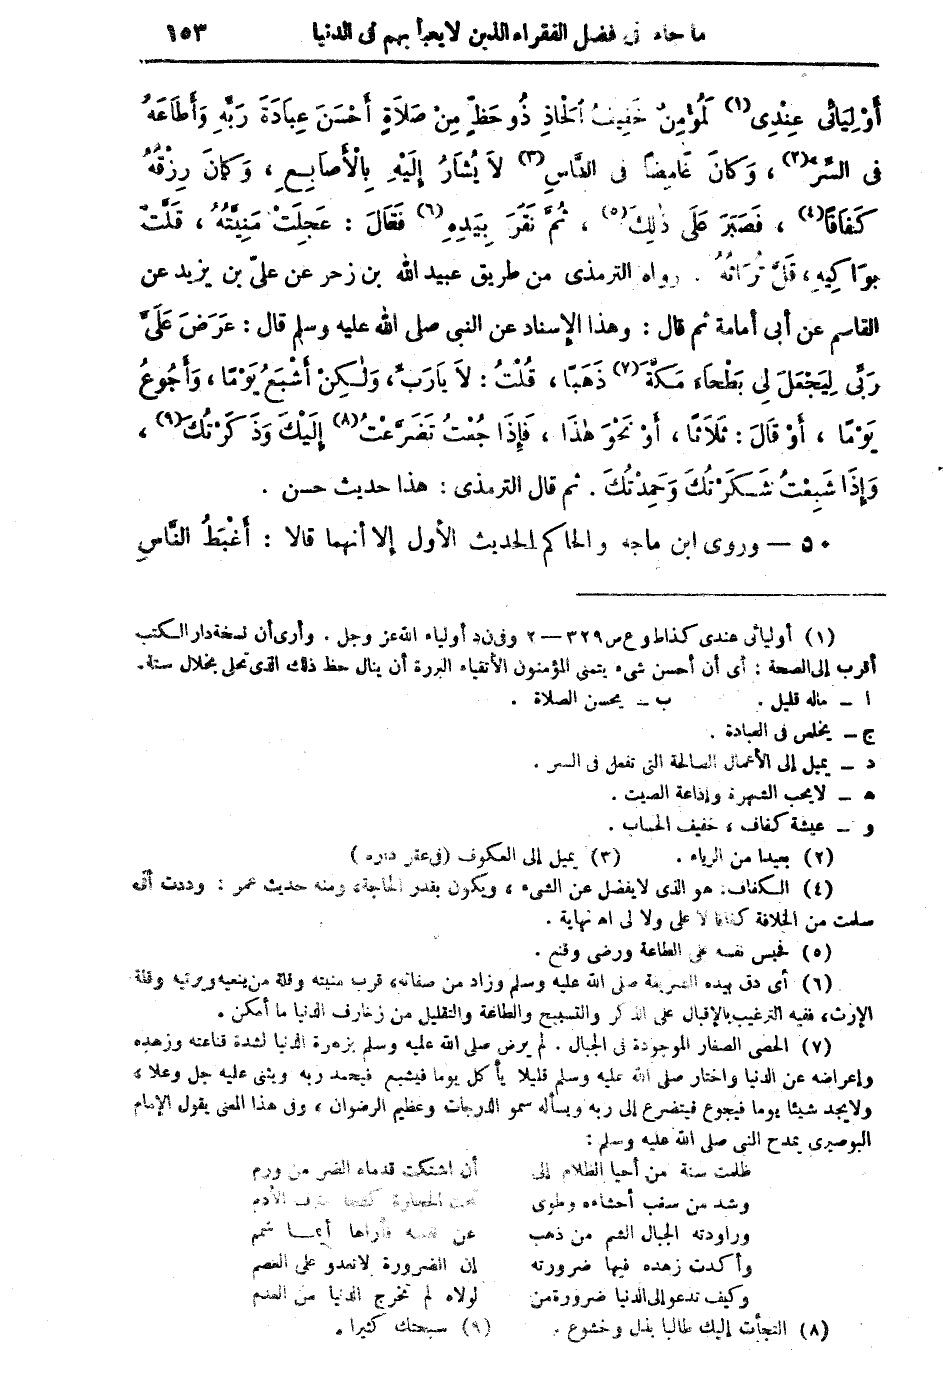 ما جاء فى فضل الفقراء الذين لا يعبأ بهم فى الدنيا ١٥٣
أَوْلِيَائى عِنْدِى(١) لَمُؤْمِنٌ خَفِيفُ الْحَاذِ ذُو حَظٍّ مِنْ صَلَاةٍ أَحْسَنَ عِبَادَةَ رَبِّهِ وَأَطَاعَهُ
فى السِّرِّ(٢)، وَكَانَ غَامِضًا فى النَّاسِ(٣) لَا يُشَارُ إِلَيْهِ بِالْأَصَابِعِ، وَكَانَ رِزْقُهُ
كَفَافًا(٤)، فَصَبَرَ عَلَى ذٰلِكَ(٥)، ثُمَّ نَقَرَ بِيَدِهِ(٦) فَقَالَ: عَجِلَتْ مَنِيَّتُهُ، قَلَّتْ
بَوَاكِيهِ، قَلَّ تُرَاثُهُ. رواه الترمذى من طريق عبيد الله بن زحر عن علىّ بن يزيد عن
القاسم عن أبى أمامة ثم قال: وهذا الإسناد عن النبى صلى الله عليه وسلم قال: عَرَضَ عَلَىَّ
رَبِّى لِيَجْعَلَ لِى بَطْحَاءَ مَكَّةَ(٧) ذَهَبًا، قُلْتُ: لَا يَارَبِّ، وَلٰكِنْ أَشْبَعُ يَوْمًا، وَأَجُوعُ
يَوْمًا، أَوْ قَالَ: ثَلَاثًا، أَوْ نَحْوَ هٰذَا، فَإِذَا جُعْتُ تَضَرَّعْتُ(٨) إِلَيْكَ وَذَكَرْتُكَ(٩)،
وَإِذَا شَبِعْتُ شَكَرْتُكَ وَحَمِدْتُكَ. ثم قال الترمذى: هذا حديث حسن.
٥٠ — وروى ابن ماجه والحاكم الحديث الأول إلا أنهما قالا: أَغْبَطُ النَّاسِ
(١) أوليائى عندى كذا ط و ع ص ٣٢٩ — ٢ وفى ن د أولياء الله عز وجل. وأرى أن نسخة دار الكتب
أقرب إلى الصحة: أى أن أحسن شىء يتمنى المؤمنون الأتقياء البررة أن ينال حظ ذلك الذى تحلى بخلال ستة.
ا — ماله قليل. ب — يحسن الصلاة.
ج — يخلص فى العبادة.
د — يميل إلى الأعمال الصالحة التى تفعل فى السر.
ه — لا يحب الشهرة وإذاعة الصيت.
و — عيشة كفاف، خفيف الحساب.
(٢) بعيدا من الرياء. (٣) يميل إلى العكوف (فى عقر داره)
(٤) الكفاف: هو الذى لا يفضل عن الشىء، ويكون بقدر الحاجة، ومنه حديث عمر: وددت أنى
سلمت من الخلافة كفافا لا على ولا لى اه نهاية.
(٥) فحبس نفسه على الطاعة ورضى وقنع.
(٦) أى دق بيده الشريفة صلى الله عليه وسلم وزاد من صفاته، قرب منيته وقلة من ينعيه ويرثيه وقلة
الإرث، ففيه الترغيب بالإقبال على الذكر والتسبيح والطاعة والتقليل من زخارف الدنيا ما أمكن.
(٧) الحصى الصغار الموجودة فى الجبال. لم يرض صلى الله عليه وسلم بزهرة الدنيا لشدة قناعته وزهده
وإعراضه عن الدنيا واختار صلى الله عليه وسلم قليلا يأكل يوما فيشبع فيحمد ربه ويثنى عليه جل وعلا،
ولا يجد شيئا يوما فيجوع فيتضرع إلى ربه ويسأله سمو الدرجات وعظيم الرضوان، وفى هذا المعنى يقول الإمام
البوصيرى يمدح النبى صلى الله عليه وسلم:
ظلمت سنة من أحيا الظلام إلى أن اشتكت قدماه الضر من ورم
وشد من سغب أحشاءه وطوى تحت الحجارة كشحا مترف الأدم
وراودته الجبال الشم من ذهب عن نفسه فأراها أيما شمم
وأكدت زهده فيها ضرورته إن الضرورة لا تعدو على العصم
وكيف تدعو إلى الدنيا ضرورة من لولاه لم تخرج الدنيا من العدم
(٨) التجأت إليك طالبا بذل وخشوع. (٩) سبحتك كثيرا.